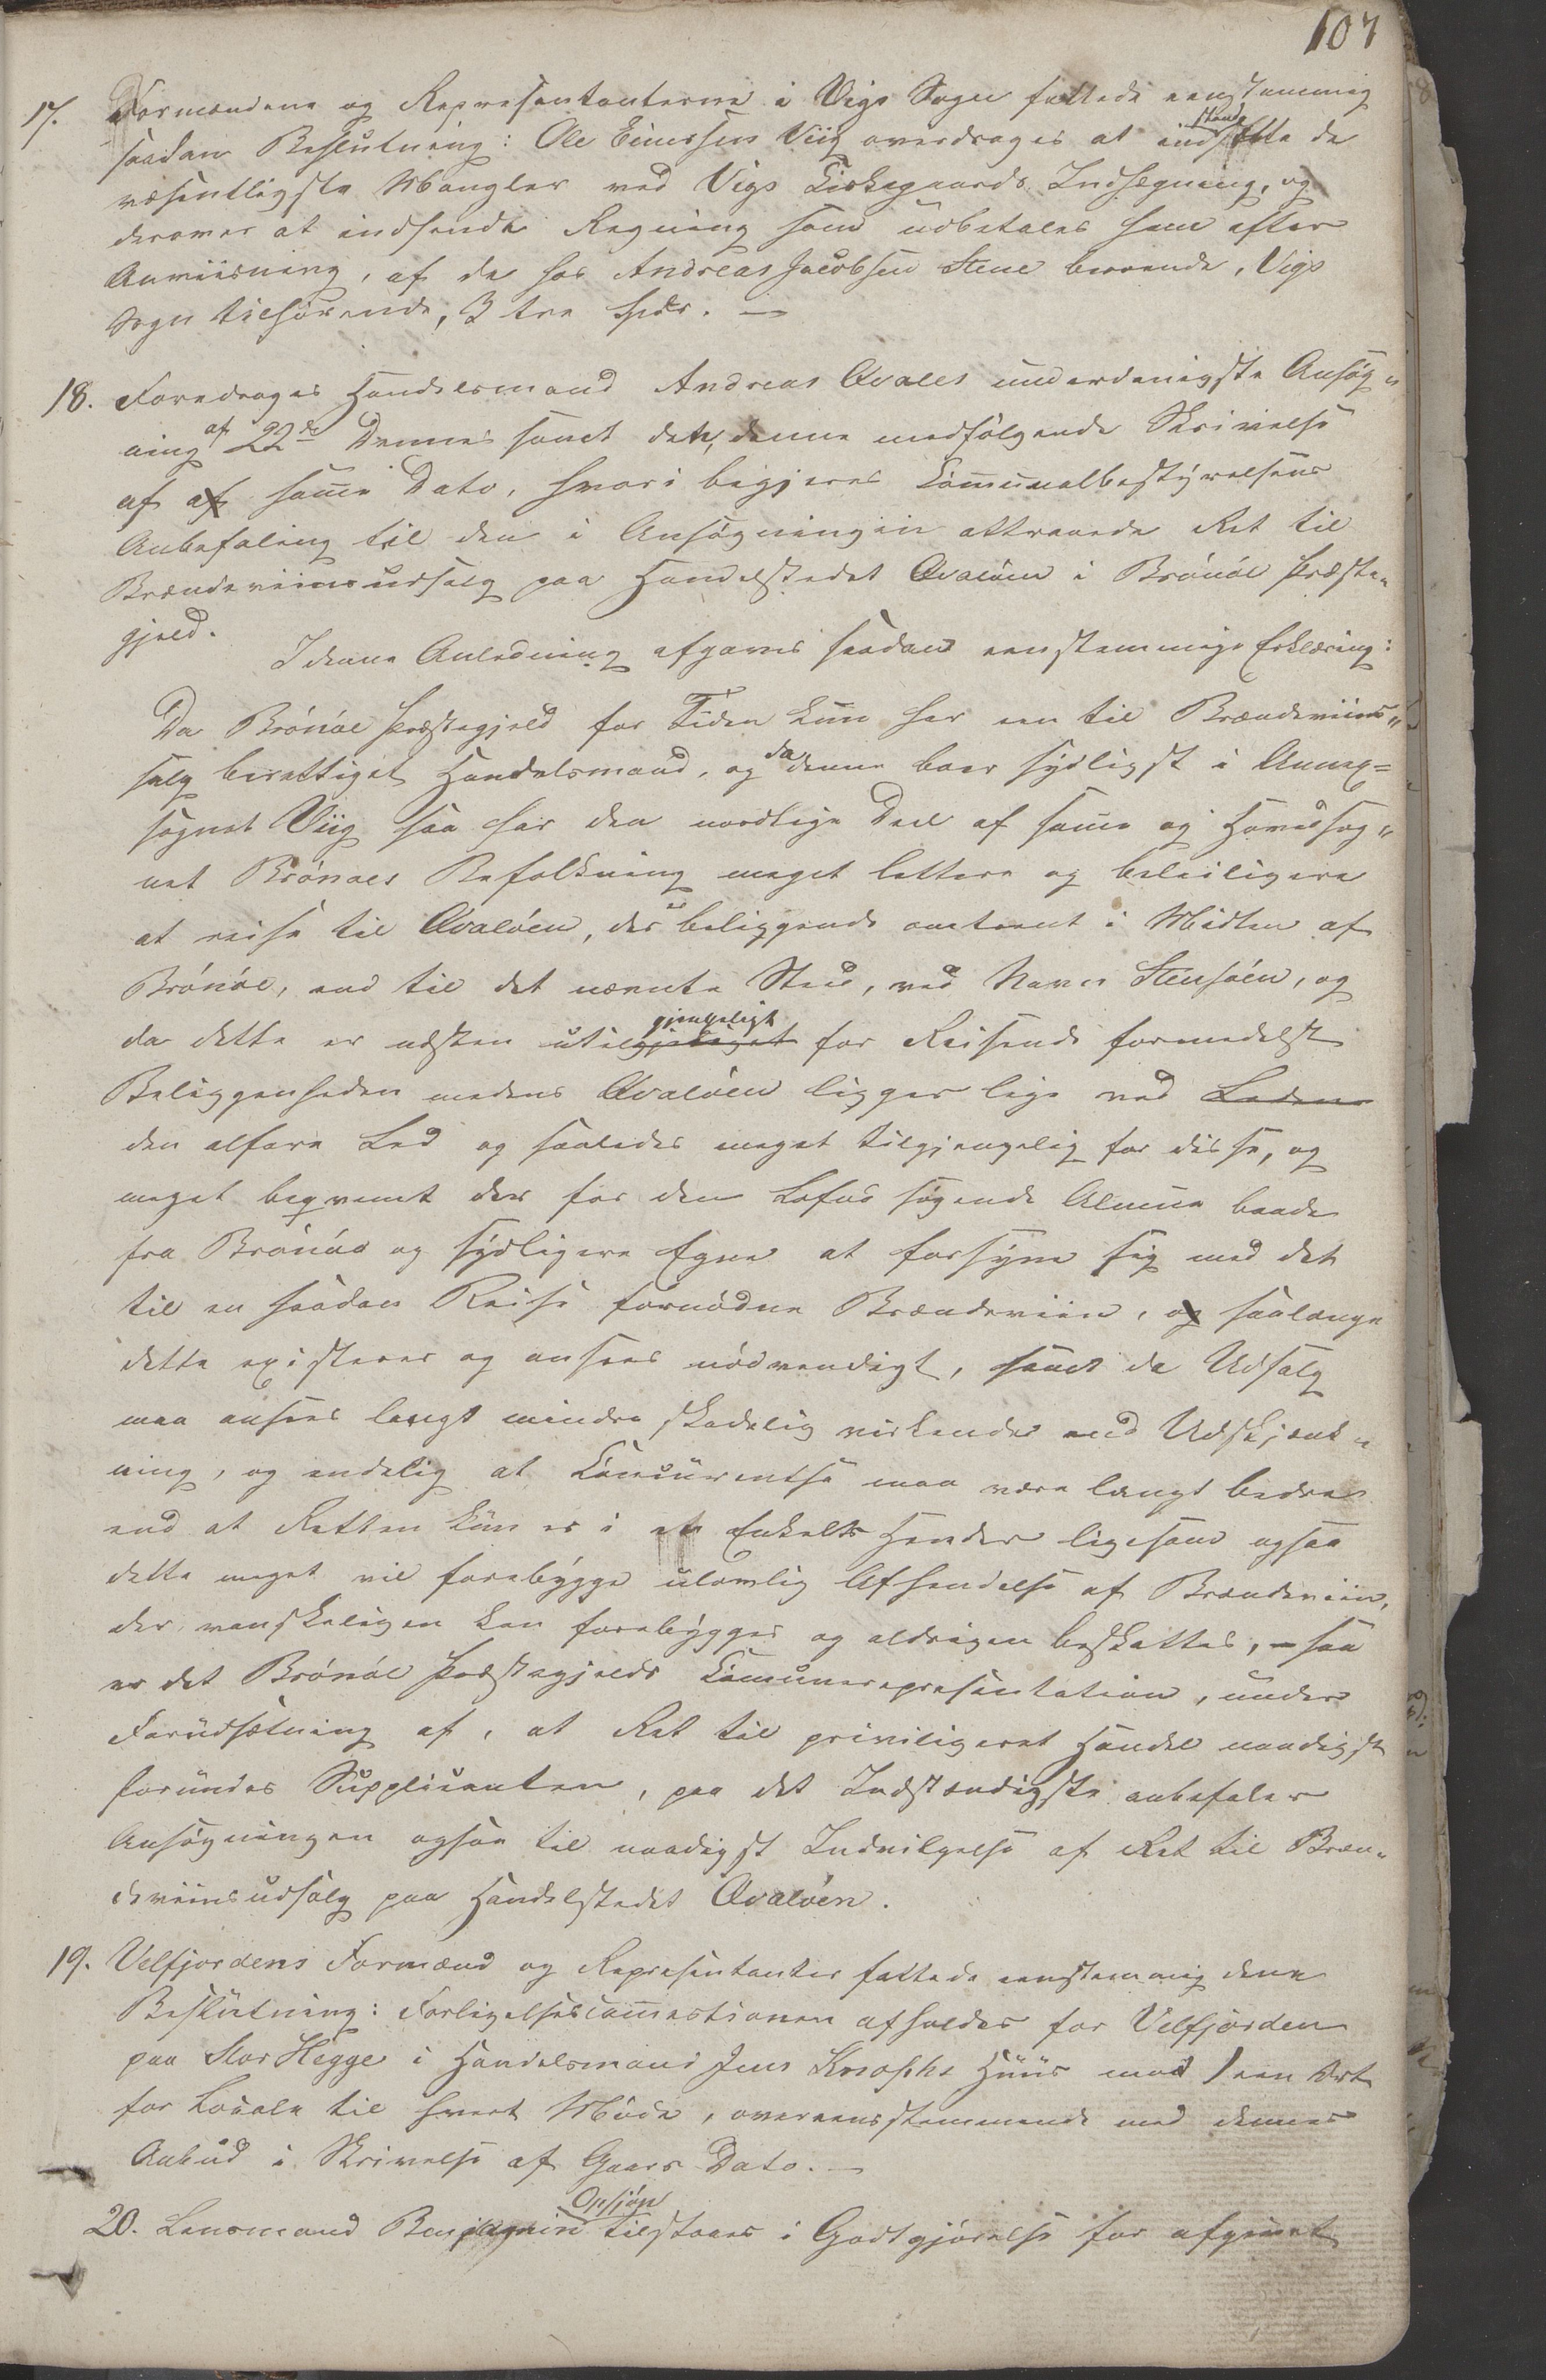 107
17. Formændene og Repræsentanterne i Vigs Sogn fattede eenstemmig
saadan Beslutning: Ole Einersen Viig overdrages at indstandsætte de
væsentligste Mangler ved Vigs Kirkegaards Indhegning, og
derover at indsende Regning som udbetales ham efter
Anviisning, af de hos Andreas Jacobsen Stene beroende, Vigs
Sogn tilhørende, 3 tre Spdr. —
18. Foredroges Handelsmand Andreas Qvales underdanigste Ansøg-
ning af 22de Dennes samt det, denne medfølgende Skrivelse
af af samme Dato, hvori begjeres Communalbestyrelsens
Anbefaling til den i Ansøgningen attraaede Ret til
Brændeviinsudsalg paa Handelstedet Qvaløen i Brönöe Præste-
gjeld.
I denne Anledning afgaves saadan eenstemmige Erklæring:
Da Brönöe Præstegjeld for Tiden kun har een til Brændeviins-
salg berettiget Handelsmand, og da denne boer sydligst i Annex-
sognet Viig saa har den nordlige Deel af samme og Hovedsog-
net Brönöes Befolkning meget lettere og beleiligere
at reise til Qvalöen, der er beliggende omtrent i Midten af
Brönöe, end til det nævnte Sted, ved Navn Stensöen, og
da dette er næsten utilgjengeligt for Reisende formedelst
Beliggenheden medens Qvalöen ligger lige ved Leden
den alfare Led og saaledes meget tilgjengelig for disse, og
meget beqvemt der for den Lofod søgende Almue baade
fra Brönöe og sydligere Egne at forsyne sig med det
til en saadan Reise fornødne Brændeviin, og saalænge
dette existerer og ansees nødvendigt, samt da Udsalg
maa ansees langt mindre skadelig virkende end Udskjænk-
ning, og endelig at Concurentse maa være langt bedre
end at Retten kun er i et Enkelts Hænder ligesom ogsaa
dette meget vil forebygge ulovlig Afhændelse af Brændeviin,
der vanskeligen kan forebygges og aldrigen beskattes, – saa
er det Brönöe Præstegjelds Communerepresentation, under
Forudsætning af, at Ret til priviligeret Handel naadigst
forundes Supplicanten, paa det Indstændigste anbefaler
Ansøgningen ogsaa til naadigst Indvilgelse af Ret til Bræn-
deviinsudsalg paa Handelstedet Qvalöen.
19. Velfjordens Formænd og Repræsentanter fattede eenstemmig denne
Beslutning: Forligelsescommestionen afholdes for Velfjorden
paa Stor Hegge i Handelsmand Jens Knophs Huus mod 1 een Ort
for Locale til hvert Møde, overeensstemmende med dennes
Anbud i Skrivelse af Gaars Dato. —
20. Lensmand Benjamin Opsjøn tilstaaes i Godtgjørelse for afgivet